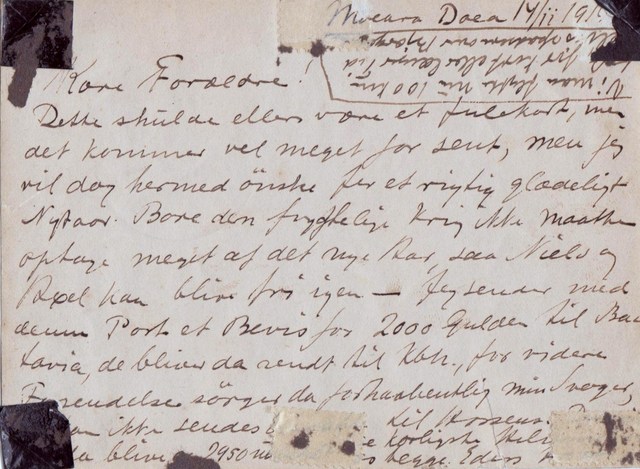 Moeara Doea 14/11 191
Kære Forældre!
Dette skulde ellers være et Julekort, men
det kommer vel meget for sent, men jeg
vil dog hermed önske Jer et rigtig glædeligt
Nytaar. Bare den frygtelige Krig ikke maatte
optage meget af det nye Aar, saa Niels og
Axel kan blive fri igen — Jeg sender med
denne Post et Bevis for 2000 Gulden til Ba
tavia, de bliver da sendt til Kbh., for videre
Forsendelse sörger da forhaabentlig min Svoger,
ikke sendes til Horsens.
blive 2950 kærligste Hils
begge. Eders